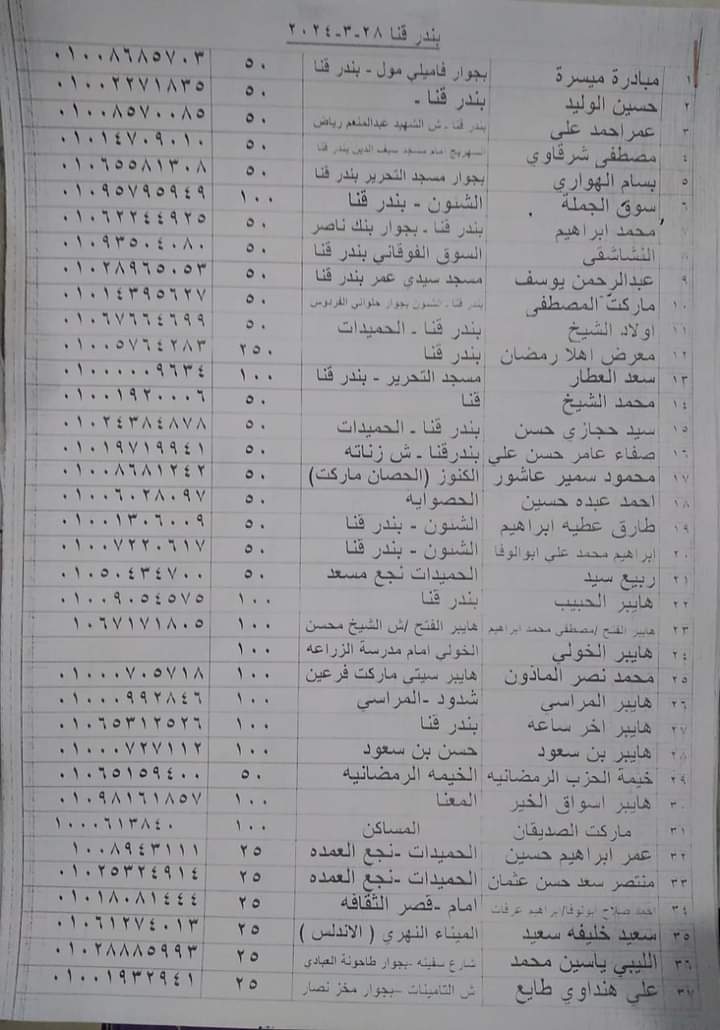 بندر قنا ٢٨-٣-٢٠٢٤
١ مبادرة ميسرة بجوار فاميلي مول - بندر قنا ٥٠ ٠١٠٠٨٦٨٥٧٠٣
٢ حسين الوليد بندر قنا - ٥٠ ٠١٠٠٢٢٧١٨٣٥
٣ عمر احمد على بندر قنا - ش الشهيد عبدالمنعم رياض ٥٠ ٠١٠٠٨٥٧٠٠٨٥
٤ مصطفى شرقاوي السهريج امام مسجد سيف الدين بندر قنا ٥٠ ٠١٠١٤٧٠٩٠١٠
٥ بسام الهواري بجوار مسجد التحرير بندر قنا ٥٠ ٠١٠٦٥٥٨١٣٠٨
٦ سوق الجملة الشئون - بندر قنا ١٠٠ ٠١٠٩٥٧٩٥٩٤٩
٧ محمد ابراهيم بندر قنا - بجوار بنك ناصر ٥٠ ٠١٠٦٢٢٤٤٩٢٥
٨ النشاشقى السوق الفوقاني بندر قنا ٥٠ ٠١٠٩٣٥٠٤٠٨٠
٩ عبدالرحمن يوسف مسجد سيدي عمر بندر قنا ٥٠ ٠١٠٢٨٩٦٥٠٥٣
١٠ ماركت المصطفى بندر قنا - الشئون بجوار حلواني الفردوس ٥٠ ٠١٠١٤٣٩٥٦٢٧
١١ اولاد الشيخ بندر قنا - الحميدات ٥٠ ٠١٠٦٧٦٦٤٦٩٩
١٢ معرض اهلا رمضان بندر قنا ٢٥٠ ٠١٠٠٥٧٦٤٢٨٣
١٣ سعد العطار مسجد التحرير - بندر قنا ١٠٠ ٠١٠٠٠٠٠٩٦٣٤
١٤ محمد الشيخ قنا ٥٠ ٠١٠٠١٩٢٠٠٠٦
١٥ سيد حجازي حسن بندر قنا - الحميدات ٥٠ ٠١٠٢٤٣٨٤٨٧٨
١٦ صفاء عامر حسن علي بندرقنا - ش زناته ٥٠ ٠١٠١٩٧١٩٩٤١
١٧ محمود سمير عاشور الكنوز (الحصان ماركت) ٥٠ ٠١٠٠٨٦٨١٢٤٢
١٨ احمد عبده حسين الحصوايه ٥٠ ٠١٠٠٦٠٢٨٠٩٧
١٩ طارق عطيه ابراهيم الشئون - بندر قنا ٥٠ ٠١٠٠١٣٠٦٠٠٩
٢٠ ابراهيم محمد على ابوالوفا الشئون - بندر قنا ٥٠ ٠١٠٠٧٢٢٠٦١٧
٢١ ربيع سيد الحميدات نجع مسعد ٥٠ ٠١٠٥٠٤٣٤٧٠٠
٢٢ هايبر الحبيب بندر قنا ١٠٠ ٠١٠٠٩٠٥٤٥٧٥
٢٣ هايبر الفتح /مصطفى محمد ابراهيم هايبر الفتح /ش الشيخ محسن ١٠٠ ٠١٠٦٧١٧١٨٠٥
٢٤ هايبر الخولي الخولي امام مدرسة الزراعه ١٠٠
٢٥ محمد نصر الماذون هايبر سيتي ماركت فرعين ١٠٠ ٠١٠٠٠٧٠٥٧١٨
٢٦ هايبر المراسي شدود -المراسي ١٠٠ ٠١٠٠٠٩٩٢٨٤٦
٢٧ هايبر اخر ساعه بندر قنا ١٠٠ ٠١٠٦٥٣١٢٥٢٦
٢٨ هايبر بن سعود حسن بن سعود ١٠٠ ٠١٠٠٠٧٢٧١١٢
٢٩ خيمة الحزب الرمضانيه الخيمه الرمضانيه ٥٠ ٠١٠٦٥١٥٩٤٠٠
٣٠ هايبر اسواق الخير المعنا ١٠٠ ٠١٠٩٨١٦١٨٥٧
٣١ ماركت الصديقان المساكن ١٠٠ ١٠٠٠٦١٣٨٤٠
٣٢ عمر ابراهيم حسين الحميدات -نجع العمده ٢٥ ٠١٠٠٨٩٤٣١١١
٣٣ منتصر سعد حسن عثمان الحميدات -نجع العمده ٢٥ ٠١٠٢٥٣٢٤٩١٤
٣٤ احمد صلاح ابوالوفا/ابراهيم عرفات امام -قصر الثقافه ٢٥ ٠١٠١٨٠٨١٤٤٤
٣٥ سعيد خليفه سعيد الميناء النهري ( الاندلس ) ٢٥ ٠١٠٦١٢٧٤٠١٣
٣٦ الليبي ياسين محمد شارع سفينه -بجوار طاحونة العبادي ٢٥ ٠١٠٢٨٨٨٥٩٩٣
٣٧ علي هنداوي طايع ش التامينات -بجوار مخبز نصار ٢٥ ٠١٠٠١٩٣٢٩٤١